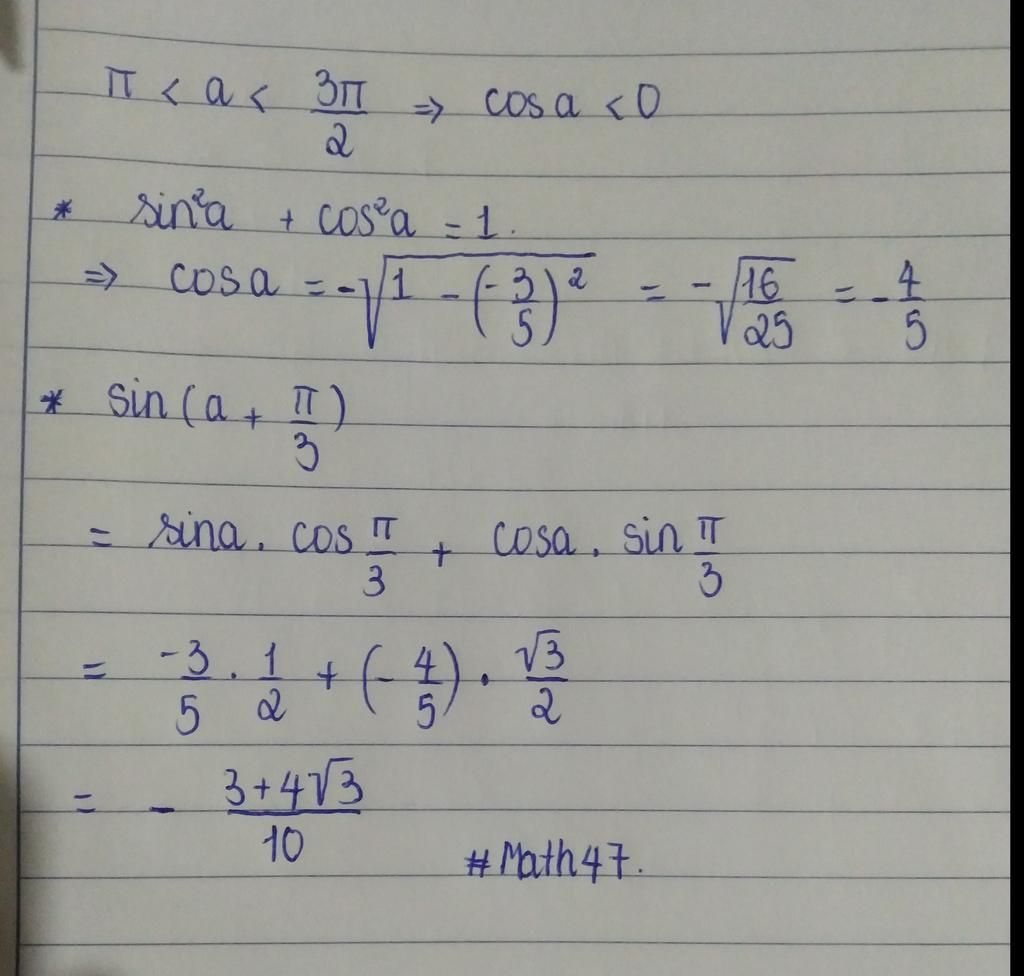 π < a < 3π/2 ⇒ cos a < 0
* sin²a + cos²a = 1.
⇒ cos a = -√(1 - (-3/5)²) = -√(16/25) = -4/5
* sin(a + π/3)
= sina . cos π/3 + cosa . sin π/3
= -3/5 . 1/2 + (-4/5) . √3/2
= - (3+4√3)/10
#Math47.